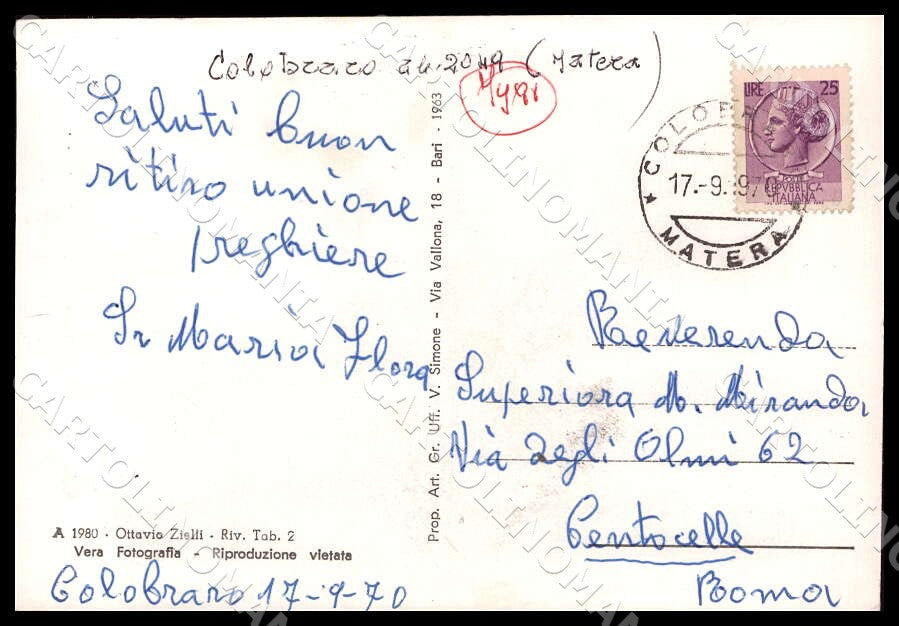 Colobraro (Matera)
Saluti buon
ritiro unione
preghiere
Sr Maria Flora
A 1980 - Ottavio Zielli - Riv. Tab. 2
Vera Fotografia - Riproduzione vietata
Colobraro 17-9-70
Prop. Art. Gr. Uff. V. Simone - Via Vallona, 18 - Bari - 1963
LIRE 25
REPVBBLICA
ITALIANA
17.-9.197
* MATERA *
Reverenda
Superiora M. Miranda
Via degli Olmi 62
Centocelle
Roma
CARTOLINOMANIA